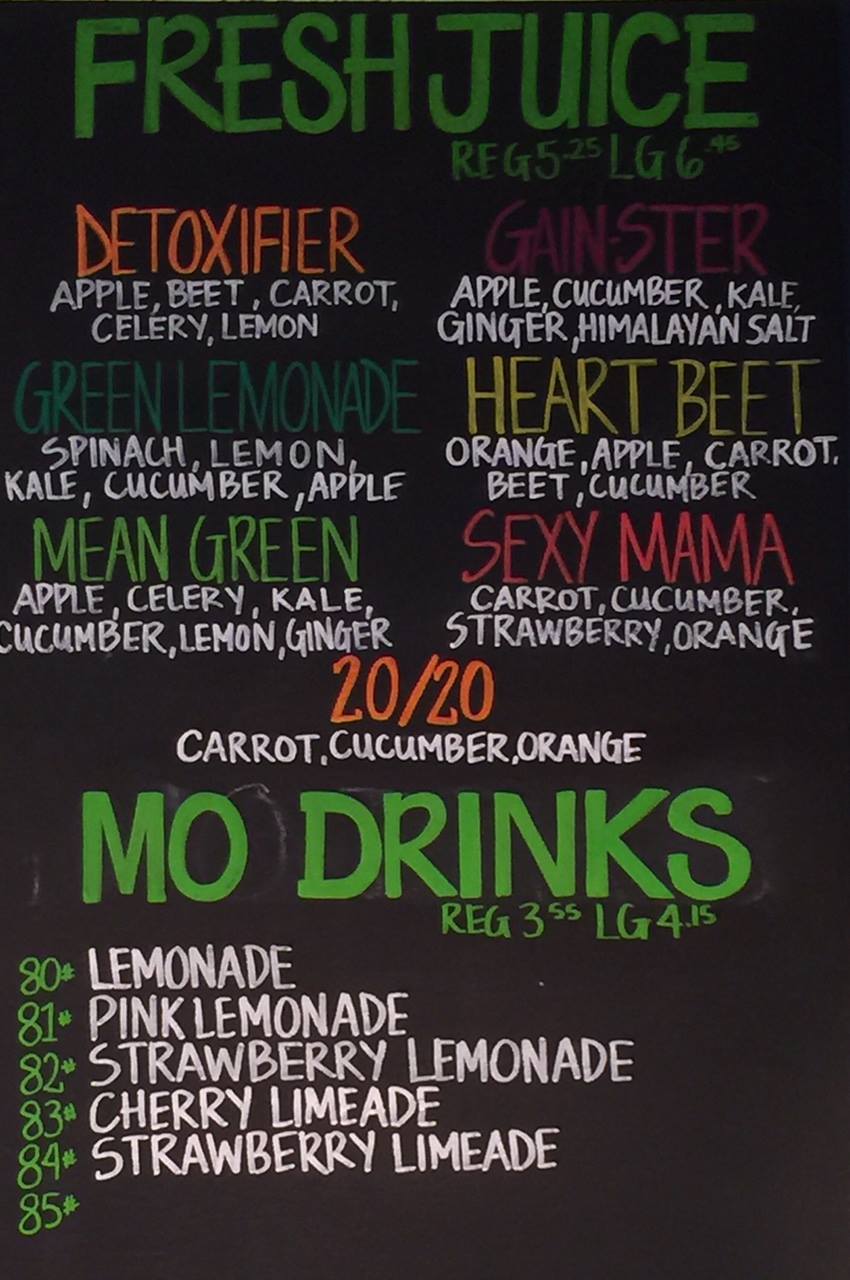 FRESH JUICE
REG 5.25 LG 6.45
DETOXIFIER
APPLE, BEET, CARROT,
CELERY, LEMON
GAIN-STER
APPLE, CUCUMBER, KALE,
GINGER, HIMALAYAN SALT
GREEN LEMONADE
SPINACH, LEMON,
KALE, CUCUMBER, APPLE
HEART BEET
ORANGE, APPLE, CARROT,
BEET, CUCUMBER
MEAN GREEN
APPLE, CELERY, KALE,
CUCUMBER, LEMON, GINGER
SEXY MAMA
CARROT, CUCUMBER,
STRAWBERRY, ORANGE
20/20
CARROT, CUCUMBER, ORANGE
MO DRINKS
REG 3 55 LG 4.15
80* LEMONADE
81* PINK LEMONADE
82* STRAWBERRY LEMONADE
83* CHERRY LIMEADE
84* STRAWBERRY LIMEADE
85*